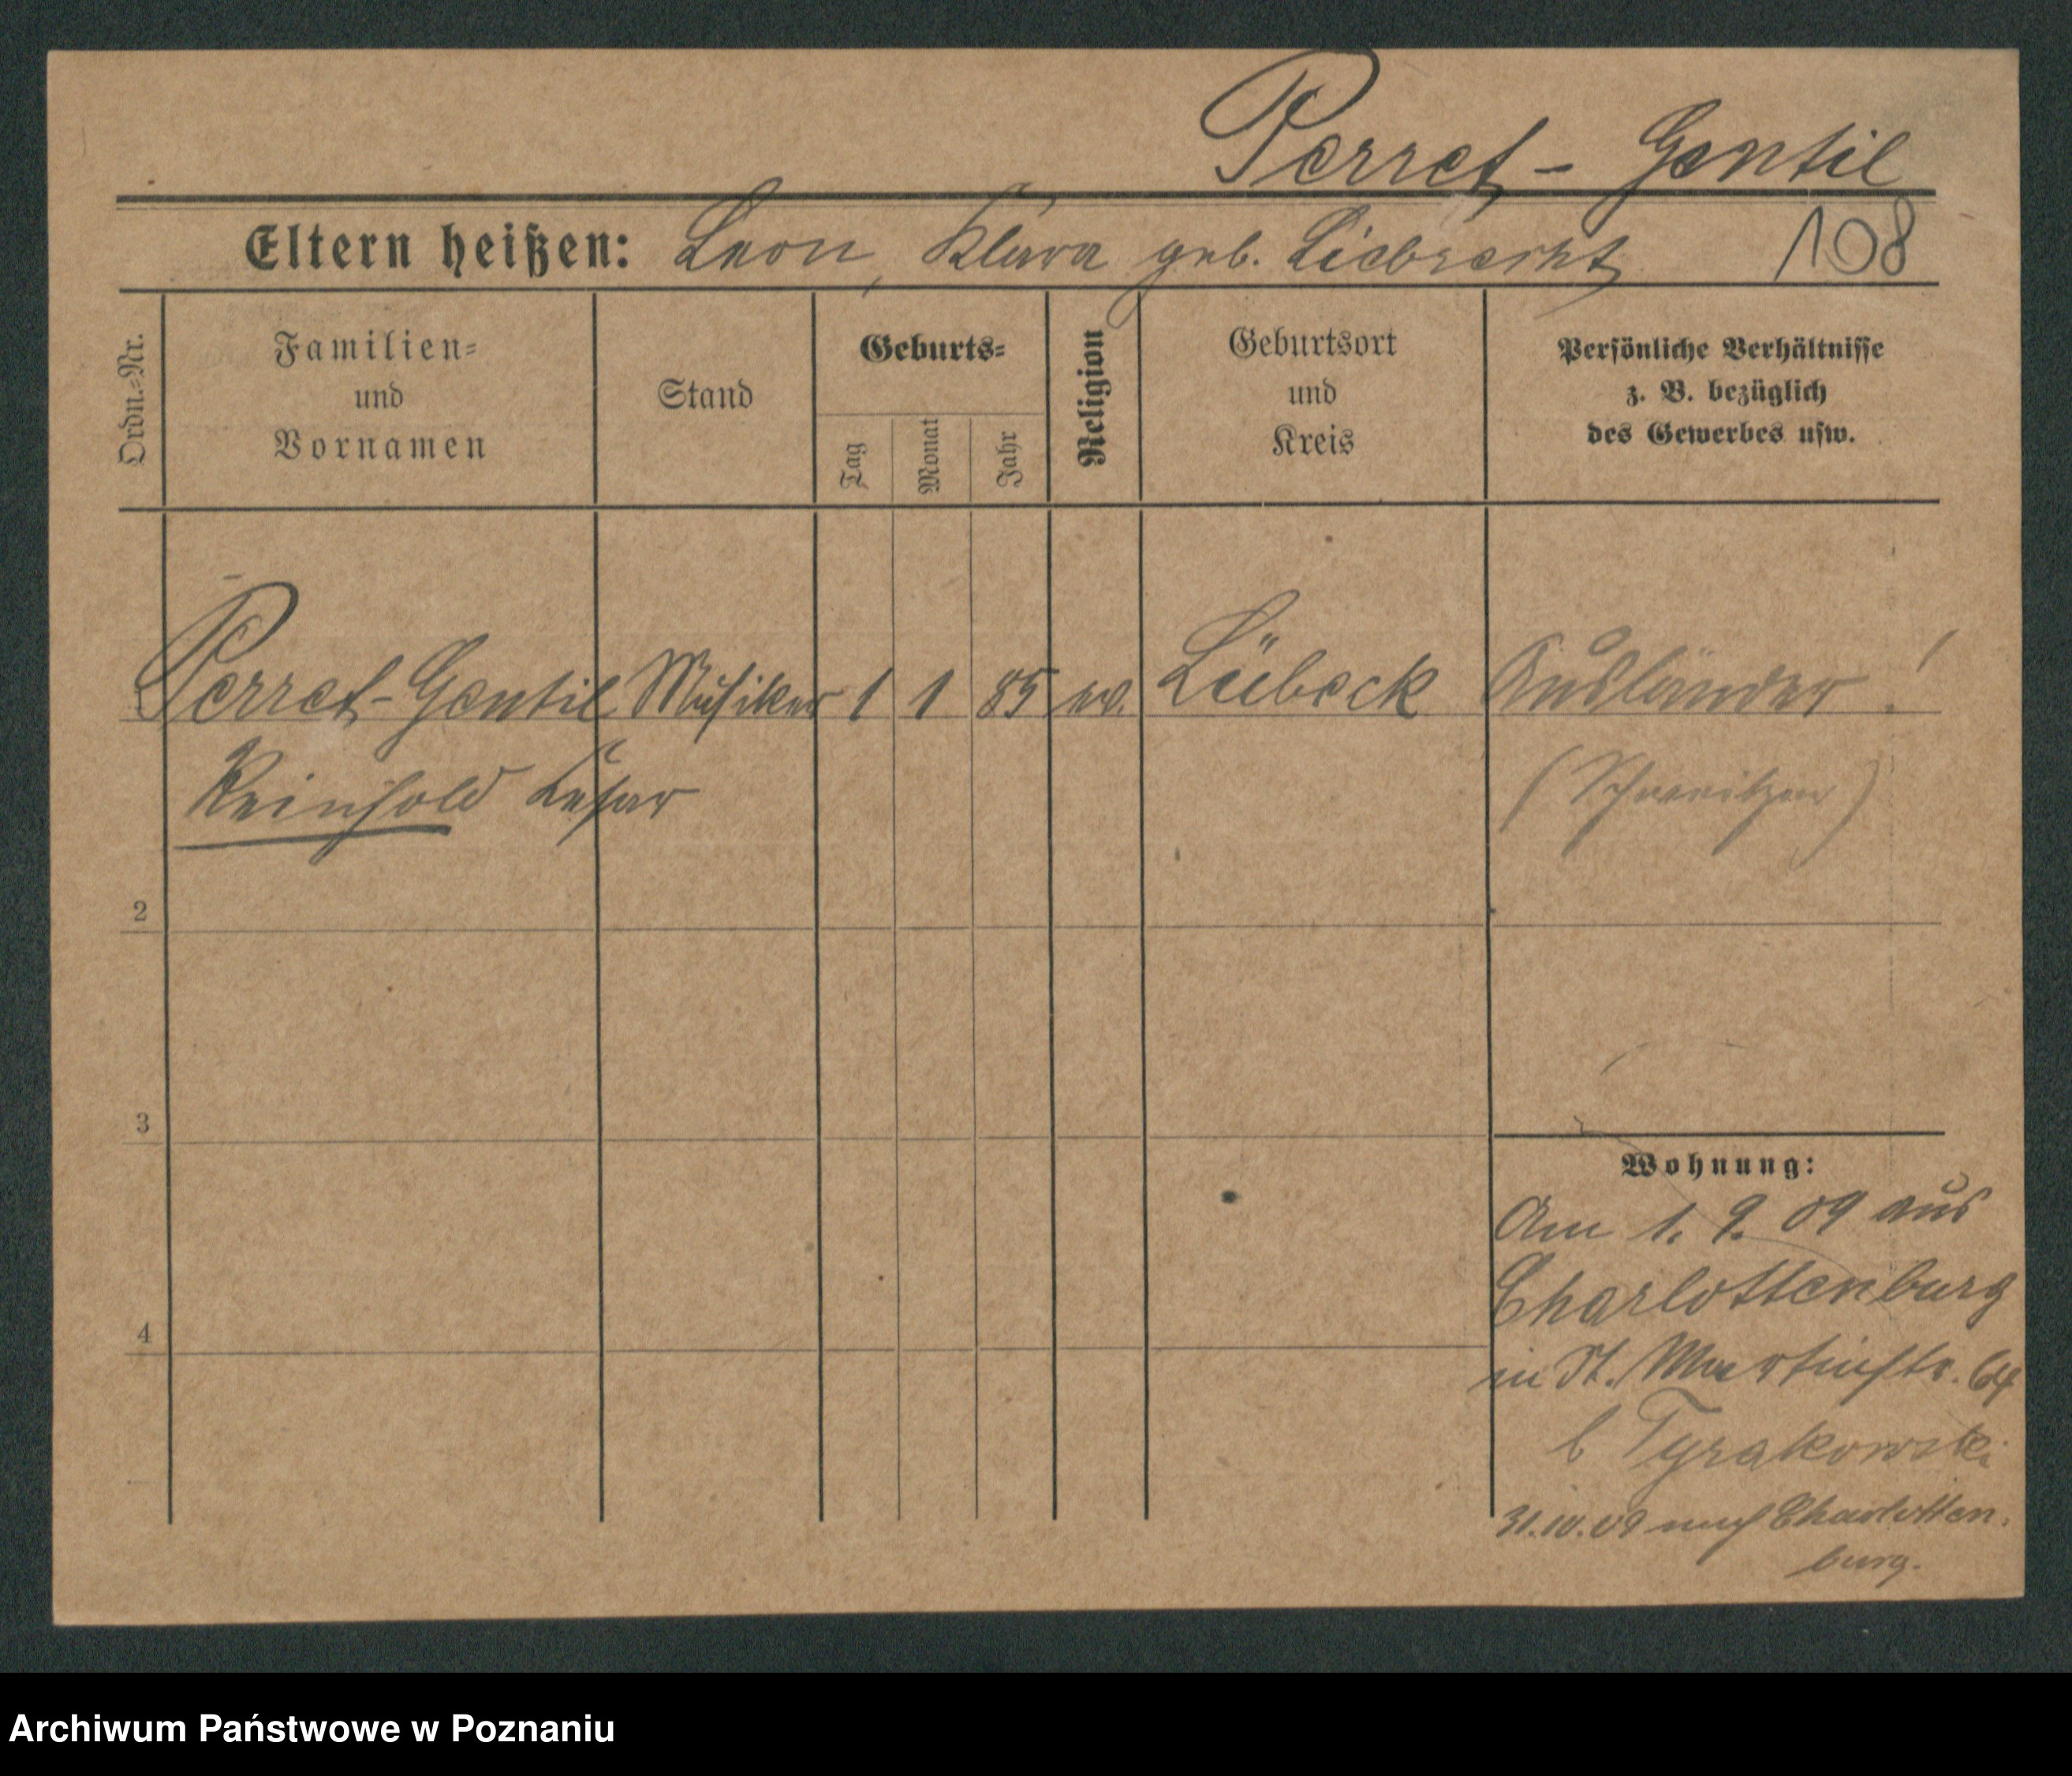 Perret-Gentil
Eltern heißen: Leon, Klara geb. Liebrecht 108
Ordn.=Nr.
Familien=
und
Vornamen
Stand
Geburts=
Tag
Monat
Jahr
Religion
Geburtsort
und
Kreis
Persönliche Verhältnisse
z. B. bezüglich
des Gewerbes usw.
Perret-Gentil Musiker 1 1 85 ev. Lübeck Ausländer!
Reinhold (Schweitzer)
2
3
4
Wohnung:
Am 1. 9. 09 aus
Charlottenburg
in St. Martinstr. 64
b Tyrakowski
31.10.09 nach Charlotten-
burg.
Archiwum Państwowe w Poznaniu